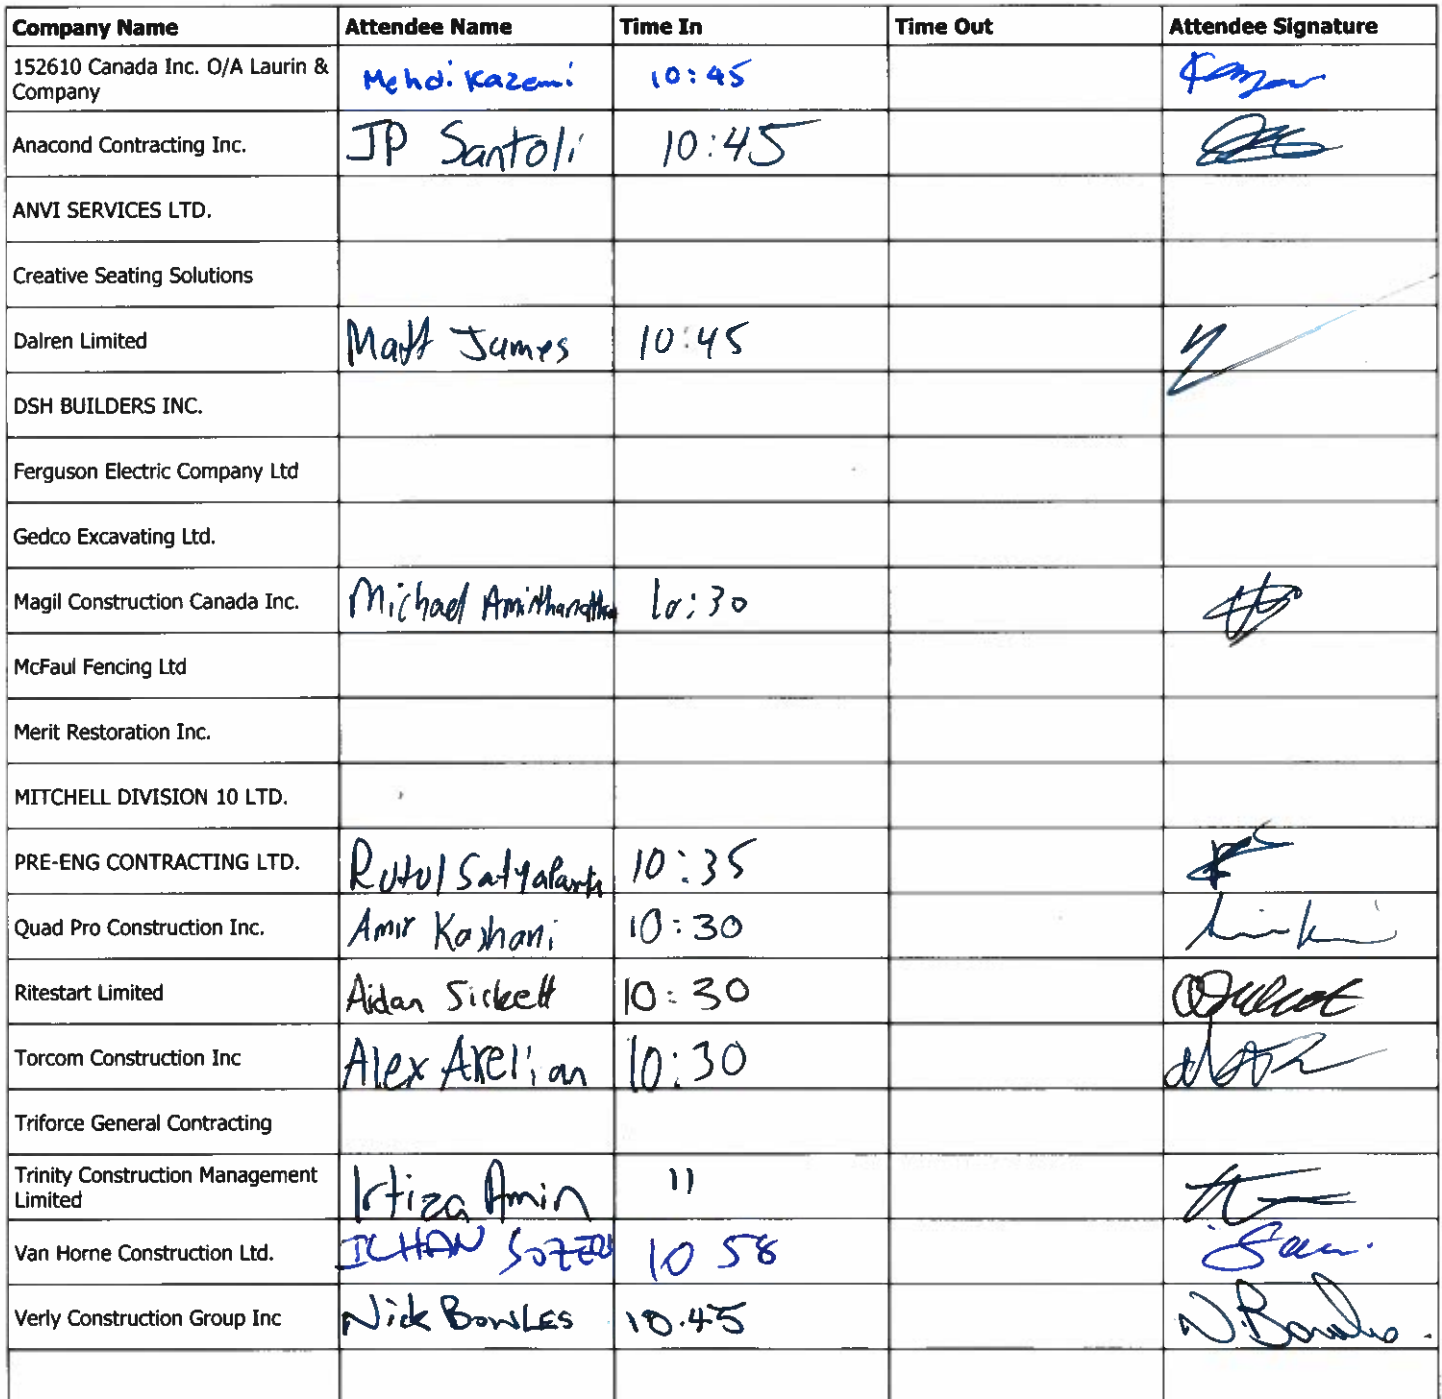 Company Name Attendee Name Time In Time Out Attendee Signature
152610 Canada Inc. O/A Laurin &
Company Mehdi Kazemi 10:45
Anacond Contracting Inc. JP Santoli 10:45
ANVI SERVICES LTD.
Creative Seating Solutions
Dalren Limited Matt James 10:45
DSH BUILDERS INC.
Ferguson Electric Company Ltd
Gedco Excavating Ltd.
Magil Construction Canada Inc. Michael 10:30
McFaul Fencing Ltd
Merit Restoration Inc.
MITCHELL DIVISION 10 LTD.
PRE-ENG CONTRACTING LTD. Rutul 10:35
Quad Pro Construction Inc. Amir Kashani 10:30
Ritestart Limited Aidan Sickett 10:30
Torcom Construction Inc Alex Arelian 10:30
Triforce General Contracting
Trinity Construction Management
Limited Irtiza Amin 11
Van Horne Construction Ltd. ILHAN 10 58
Verly Construction Group Inc Nick BowLES 10.45 N. Bowles